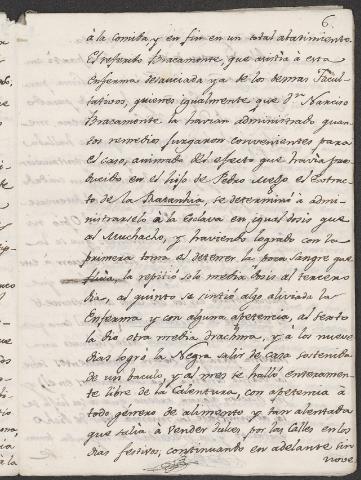 6.
à la comida, y en fin en un total abatimiento.
El referido Bracamonte, que asistia à esta
Enferma desauciada ya de los demas Facul-
tativos, quienes igualmente que Dn. Narciso
Bracamonte la havian administrado quan-
tos remedios jusgaron convenientes para
el caso, animado del efecto que havia pro-
ducido en el hijo de Pedro el Extracto
de la Ratanhia, se determinó à admi-
nistrarselo à la Esclava en igual dosis que
al Muchacho, y haviendo logrado con la
primera toma el detener la poca sangre que
fluia, la repitió solo media dosis al tercero
dia, al quinto se sintió algo aliviada la
Enferma y con alguna apetencia, al sexto
la dio otra media drachma, y à los nueve
dias logró la Negra salir de casa sostenida
de un baculo, y al mes se halló enteramen-
te libre de la Calentura, con apetencia à
todo genero de alimento, y tan alentada
que salia à vender dulces por las Calles en los
dias festivos, continuando en adelante sin
nove